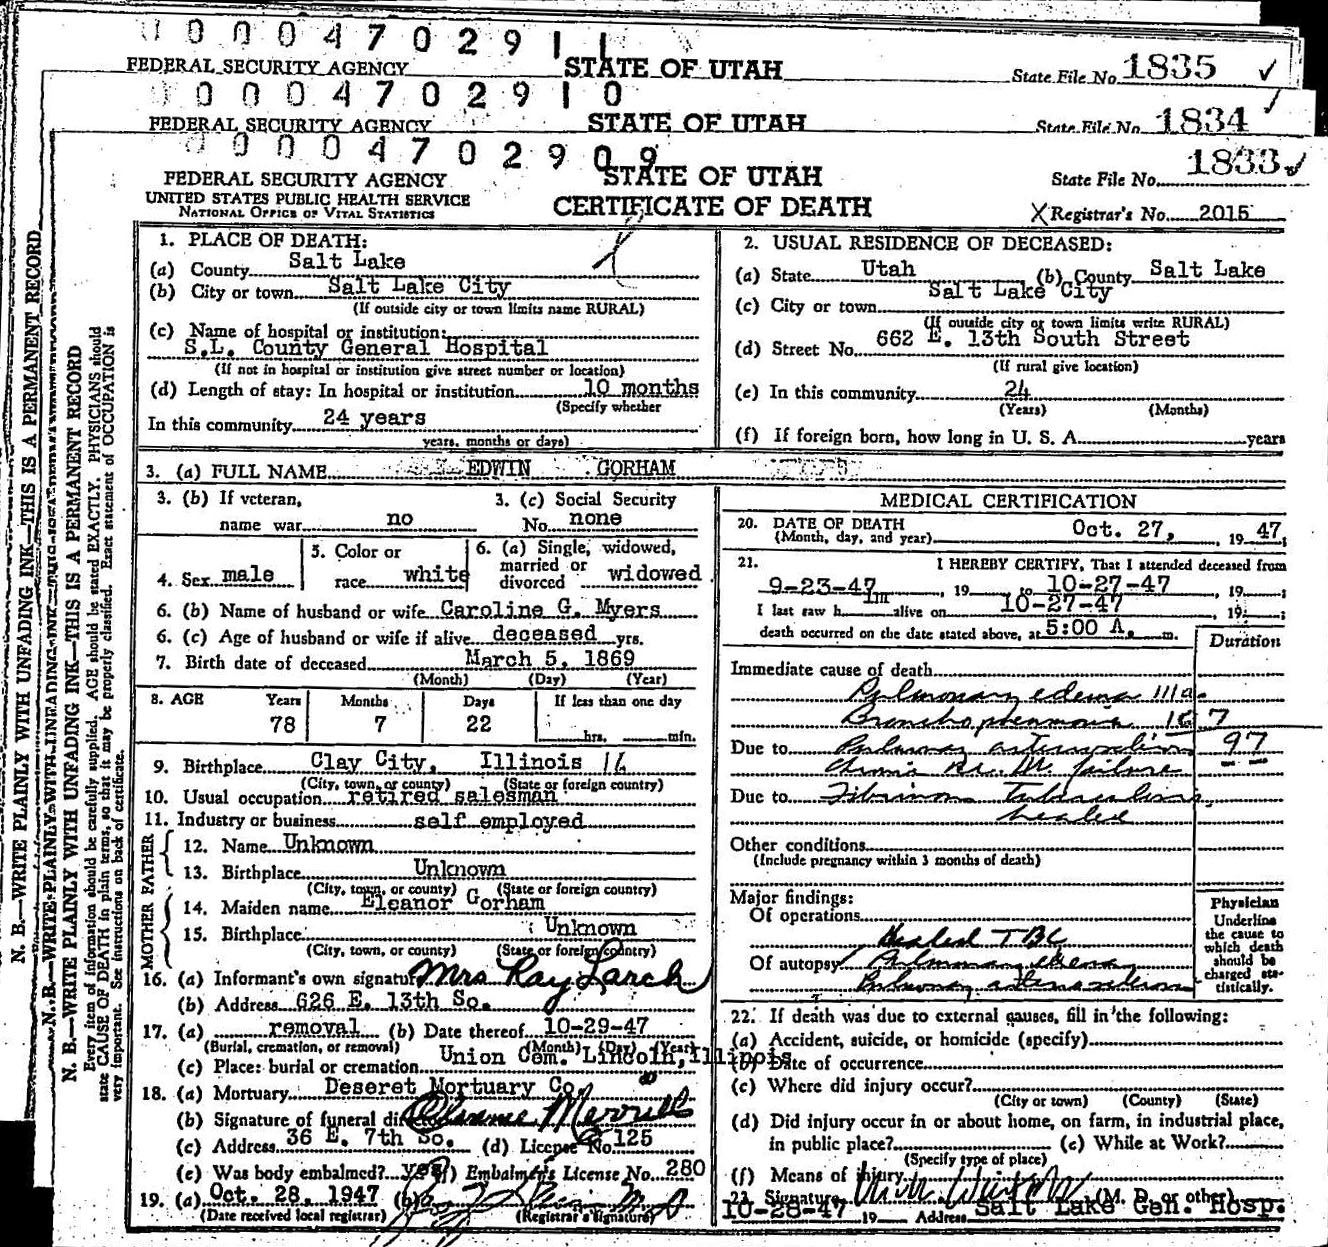 0000470291 1
FEDERAL SECURITY AGENCY STATE OF UTAH State File No. 1835 ✓
0000470291 0
FEDERAL SECURITY AGENCY STATE OF UTAH State File No. 1834 ✓
000047029 09
1833 ✓
FEDERAL SECURITY AGENCY STATE OF UTAH State File No.
UNITED STATES PUBLIC HEALTH SERVICE
NATIONAL OFFICE OF VITAL STATISTICS CERTIFICATE OF DEATH X Registrar's No. 2015
N. B.—WRITE PLAINLY WITH UNFADING INK—THIS IS A PERMANENT RECORD
N. B.—WRITE PLAINLY WITH UNFADING INK—THIS IS A PERMANENT RECORD
Every item of information should be carefully supplied. AGE should be stated EXACTLY. PHYSICIANS should
state CAUSE OF DEATH in plain terms, so that it may be properly classified. Exact statement of OCCUPATION is
very important. See instructions on back of certificate.
1. PLACE OF DEATH:
(a) County Salt Lake
(b) City or town Salt Lake City
(If outside city or town limits name RURAL)
(c) Name of hospital or institution:
S.L. County General Hospital
(If not in hospital or institution give street number or location)
(d) Length of stay: In hospital or institution 10 months
(Specify whether
In this community 24 years
years, months or days)
2. USUAL RESIDENCE OF DECEASED:
(a) State Utah (b) County Salt Lake
(c) City or town Salt Lake City
(If outside city or town limits write RURAL)
(d) Street No. 662 E. 13th South Street
(If rural give location)
(e) In this community 24
(Years) (Months)
(f) If foreign born, how long in U. S. A. years
3. (a) FULL NAME EDWIN GORHAM
3. (b) If veteran, 3. (c) Social Security
name war no No. none
4. Sex male
5. Color or
race white
6. (a) Single, widowed,
married or
divorced widowed
6. (b) Name of husband or wife Caroline G. Myers
6. (c) Age of husband or wife if alive deceased yrs.
7. Birth date of deceased March 5, 1869
(Month) (Day) (Year)
8. AGE Years Months Days If less than one day
78 7 22 hrs. min.
9. Birthplace Clay City, Illinois 16
(City, town, or county) (State or foreign country)
10. Usual occupation retired salesman
11. Industry or business self employed
FATHER
12. Name Unknown
13. Birthplace Unknown
(City, town, or county) (State or foreign country)
MOTHER
14. Maiden name Eleanor Gorham
15. Birthplace Unknown
(City, town, or county) (State or foreign country)
16. (a) Informant's own signature Mrs Ray Larch
(b) Address 626 E. 13th So.
17. (a) removal (b) Date thereof 10-29-47
(Burial, cremation, or removal) (Month) (Day) (Year)
(c) Place: burial or cremation Union Cem. Lincoln, Illinois
18. (a) Mortuary Deseret Mortuary Co.
(b) Signature of funeral director Merrill
(c) Address 36 E. 7th So. (d) License No. 125
(e) Was body embalmed? yes (f) Embalmer's License No. 280
19. (a) Oct. 28, 1947 (b) M D
(Date received local registrar) (Registrar's signature)
MEDICAL CERTIFICATION
20. DATE OF DEATH
(Month, day, and year) Oct. 27, , 19 47;
21. I HEREBY CERTIFY, That I attended deceased from
9-23-47 , 19 to 10-27-47 , 19 ;
I last saw h im alive on 10-27-47 , 19 ;
death occurred on the date stated above, at 5:00 A. m.
Duration
Immediate cause of death
Pulmonary edema 111a
Broncho pneumonia 107
Due to Pulmonary 97
failure
Due to Tuberculosis,
healed
Other conditions
(Include pregnancy within 3 months of death)
Major findings:
Of operations
Healed TBC
Of autopsy Pulmonary edema
Pulmonary
Physician
Underline
the cause to
which death
should be
charged sta-
tistically.
22. If death was due to external causes, fill in the following:
(a) Accident, suicide, or homicide (specify)
(b) Date of occurrence
(c) Where did injury occur?
(City or town) (County) (State)
(d) Did injury occur in or about home, on farm, in industrial place,
in public place? (e) While at Work?
(Specify type of place)
(f) Means of injury
23. Signature (M. D. or other)
10-28-47 19 Address Salt Lake Gen. Hosp.